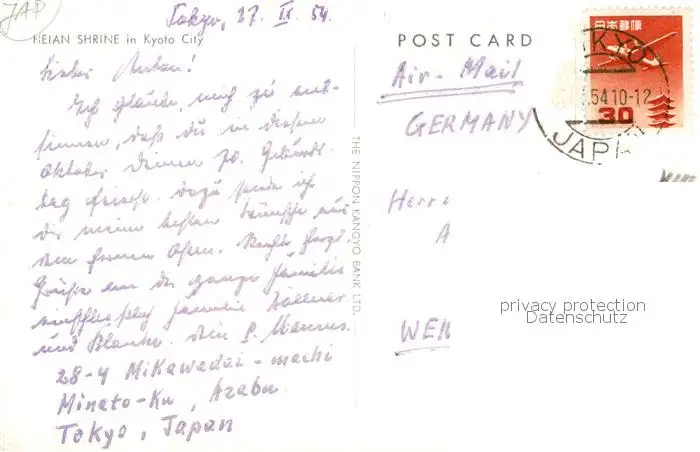 JAP
Tokyo, 27. IX. 54.
HEIAN SHRINE in Kyoto City
Lieber Anton!
Ich glaube, mich zu ent-
sinnen, daß du in diesem
Oktober deinen 70. Geburts-
tag feierst. Dazu sende ich
dir meine besten Wünsche aus
dem fernen Osten. Recht herzl.
Grüße an die ganze Familie
einschließlich Familie Zöllner
und Blanke. Dein P.
28-4 Mikawadai-machi
Minato-Ku, Azabu
Tokyo, Japan
THE NIPPON KANGYO BANK LTD.
POST CARD
Air-Mail
GERMANY
Herrn
A
WEI
日本郵便
30
KYO
.54 10-12
JAPAN
privacy protection
Datenschutz